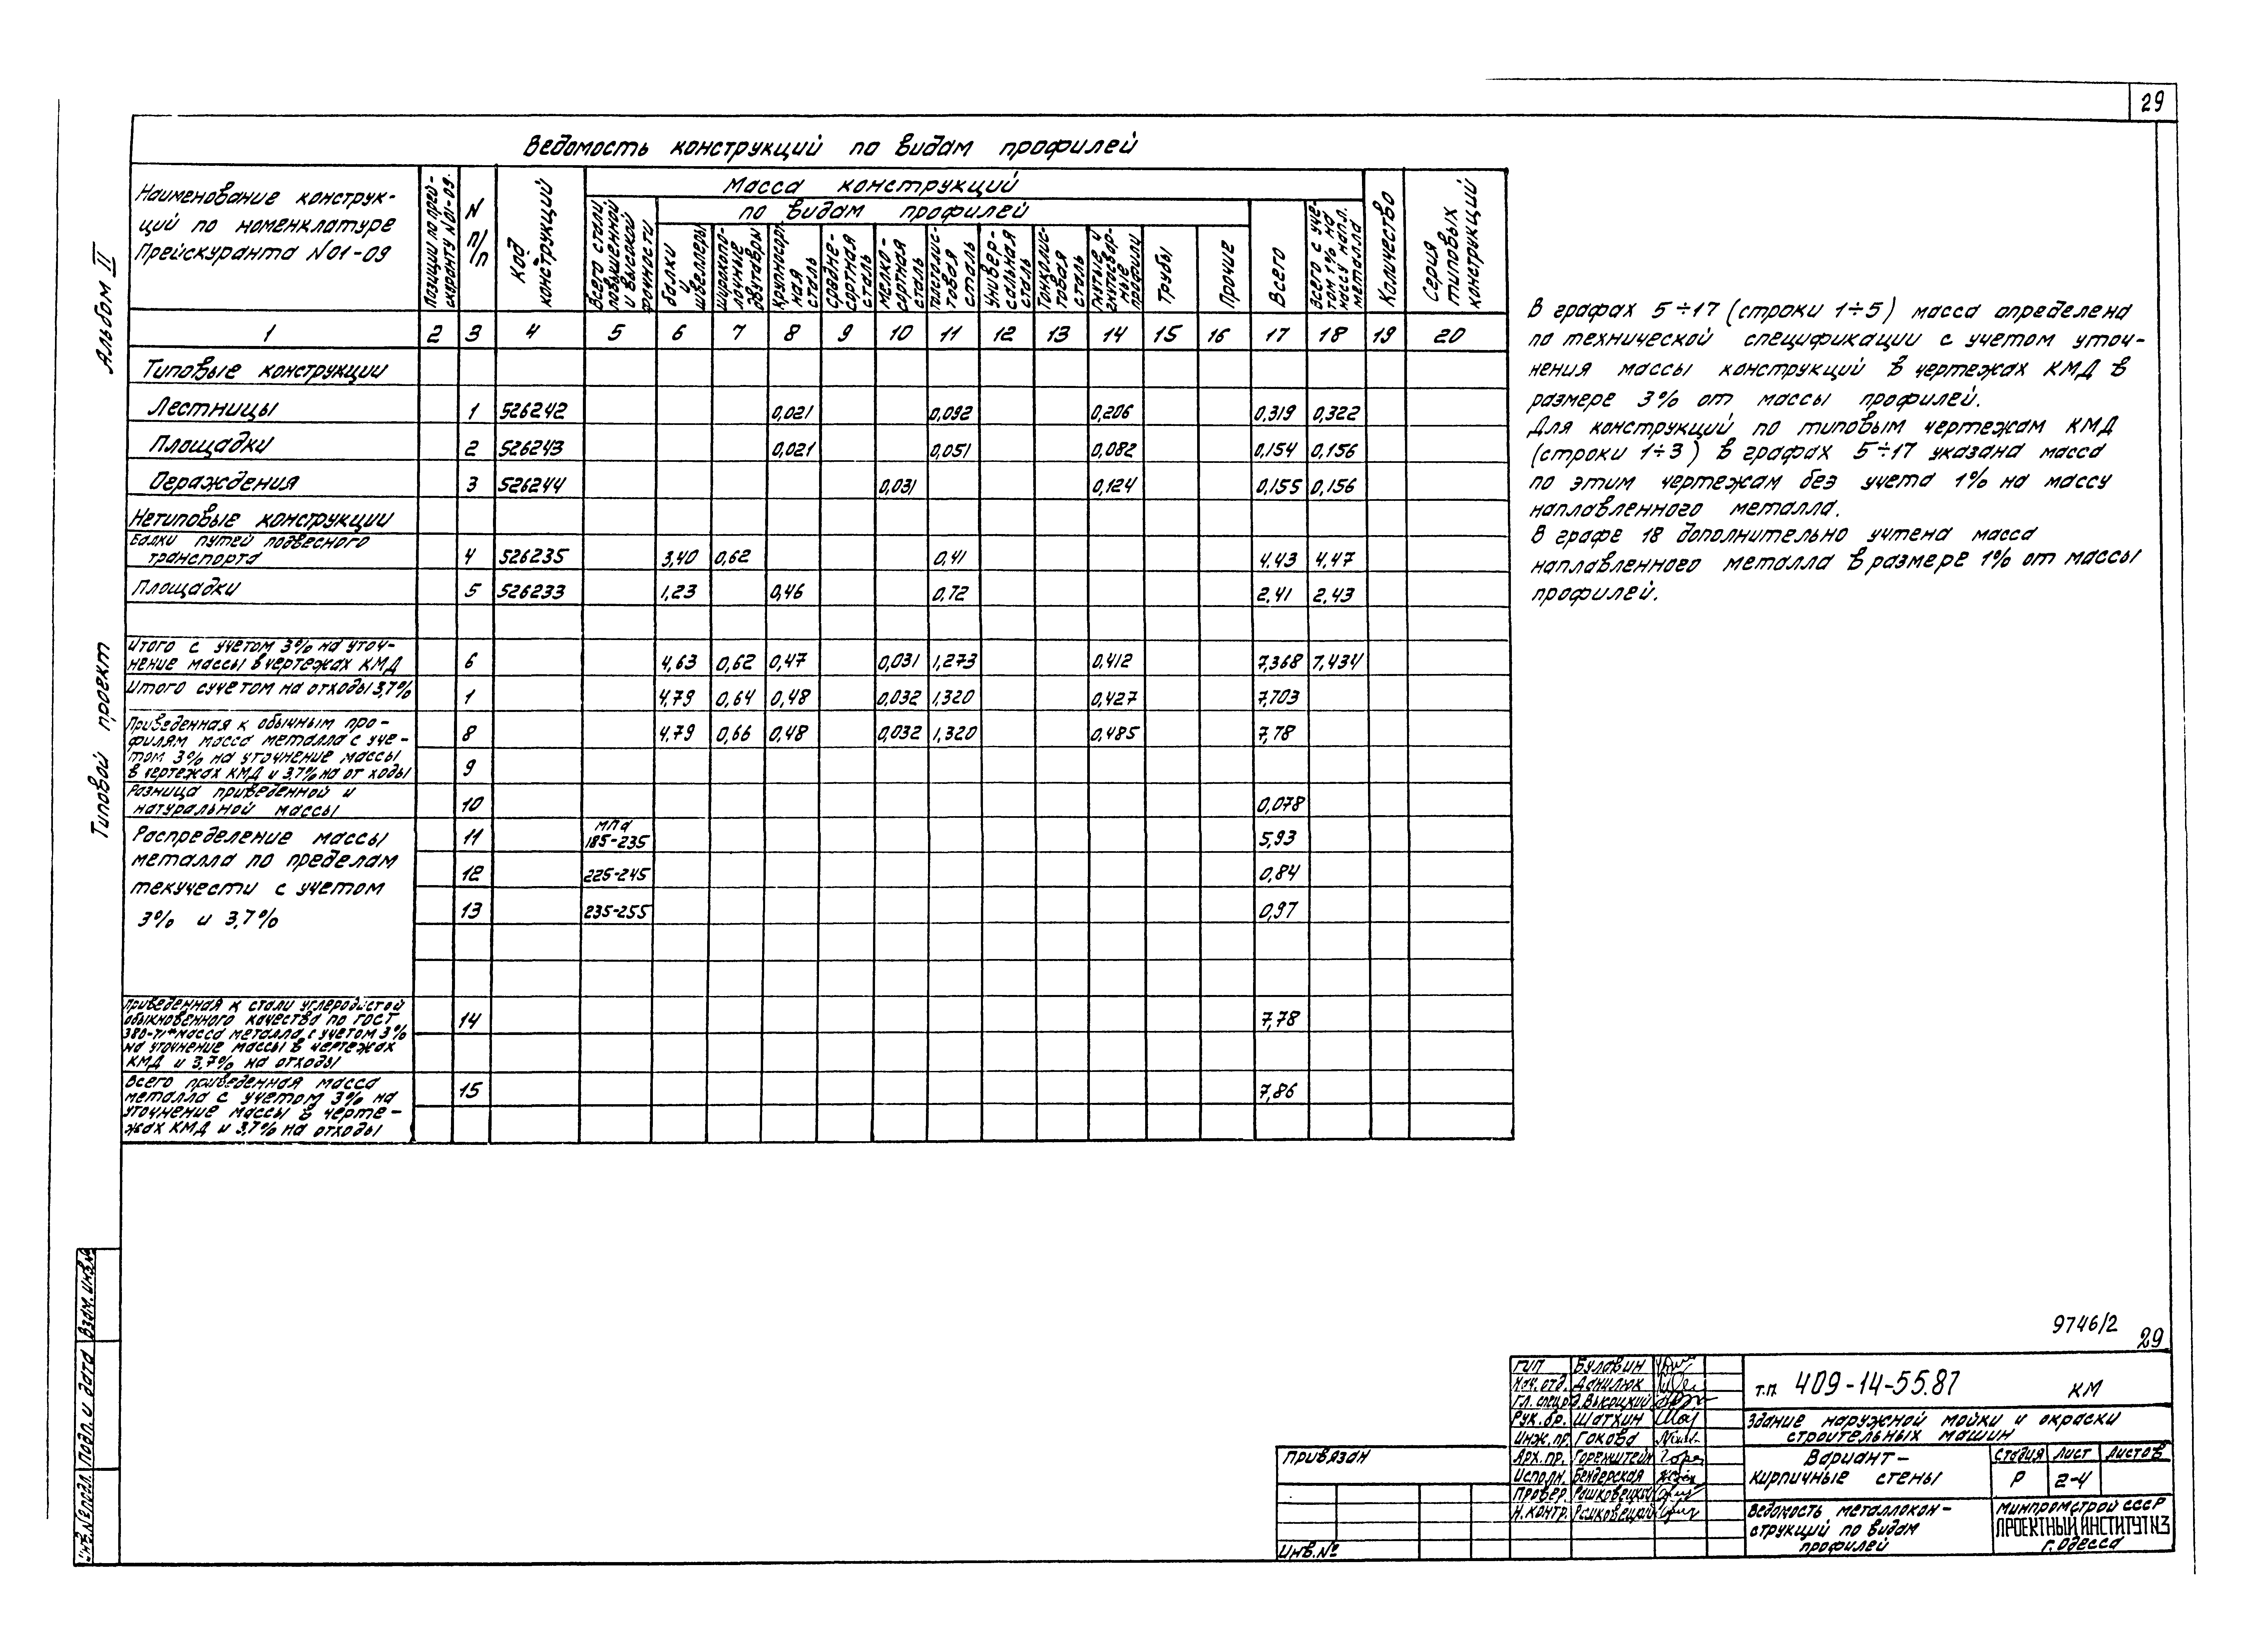 29
Альбом II
Типовой проект
Ведомость конструкций по видам профилей
Наименование конструк-
ций по номенклатуре
Прейскуранта N01-09
Позиции по прей-
скуранту N01-09.
N
п/п
Код
конструкций
Масса конструкций
Всего стали
повышенной
и высокой
прочности
по видам профилей
балки
и
швеллеры
широкопо-
лочные
двутавры
крупносорт-
ная
сталь
средне-
сортная
сталь
мелко-
сортная
сталь
толстолис-
товая
сталь
универ-
сальная
сталь
тонколис-
товая
сталь
гнутые и
гнутосвар-
ные
профили
Трубы
Прочие
Всего
всего с уче-
том 1% на
массу напл.
металла
Количество
Серия
типовых
конструкций
1 2 3 4 5 6 7 8 9 10 11 12 13 14 15 16 17 18 19 20
Типовые конструкции
Лестницы 1 526242 0,021 0,092 0,206 0,319 0,322
Площадки 2 526243 0,021 0,051 0,082 0,154 0,156
Ограждения 3 526244 0,031 0,124 0,155 0,156
Нетиповые конструкции
Балки путей подвесного
транспорта 4 526235 3,40 0,62 0,41 4.43 4.47
Площадки 5 526233 1,23 0,46 0,72 2.41 2.43
Итого с учетом 3% на уточ-
нение массы в чертежах КМД 6 4,63 0,62 0,47 0,031 1,273 0,412 7,368 7,434
Итого сучетом на отходы 3,7% 1 4.79 0,64 0,48 0,032 1,320 0,427 7,703
Приведенная к обычным про-
филям масса металла с уче- 8 4.79 0,66 0,48 0,032 1,320 0,485 7,78
том 3% на уточнение массы
в чертежах КМД и 3,7% на от ходы 9
Разница приведенной и
натуральной массы 10 0,078
Распределение массы 11 МПа 185-235 5,93
металла по пределам 12 225-245 0,84
текучести с учетом 13 235-255 0,97
3% и 3,7%
Приведенная к стали углеродистой
обыкновенного качества по ГОСТ 14 7,78
380-71* масса металла с учетом 3%
на уточнение массы в чертежах
КМД и 3,7% на отходы
Всего приведенная масса 15 7,86
металла с учетом 3% на
уточнение массы в черте-
жах КМД и 3,7% на отходы
В графах 5÷17 (строки 1÷5) масса определена
по технической спецификации с учетом уточ-
нения массы конструкций в чертежах КМД в
размере 3% от массы профилей.
Для конструкций по типовым чертежам КМД
(строки 1÷3) в графах 5÷17 указана масса
по этим чертежам без учета 1% на массу
наплавленного металла.
В графе 18 дополнительно учтена масса
наплавленного металла в размере 1% от массы
профилей.
9746/2
29
ГИП Булавин
Нач. отд. Данилюк
Гл. спец. Выкоцкий
Рук. бр. Шаткин
Инж. пр. Гокова
Арх. пр. Горенштейн
Исполн. Бендерская
Провер. Рашковецкий
Н. контр. Рашковецкий
т.п. 409-14-55.87 КМ
Здание наружной мойки и окраски
строительных машин
Вариант-
кирпичные стены
Стадия Лист Листов
Р 2-4
Ведомость металлокон-
струкций по видам
профилей
Минпромстрой СССР
ПРОЕКТНЫЙ ИНСТИТУТ N3
г. Одесса
Привязан
Инв.№
Взам. инв.№
Подп. и дата
Инв.№ подл.